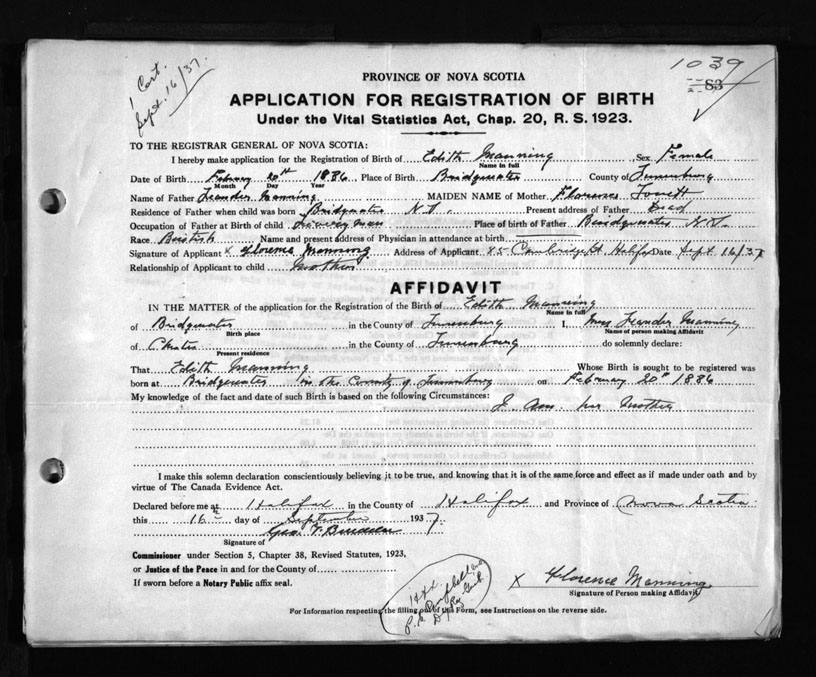 1 Cert.
Sept. 16/37.
1039
83
PROVINCE OF NOVA SCOTIA
APPLICATION FOR REGISTRATION OF BIRTH
Under the Vital Statistics Act, Chap. 20, R. S. 1923.
TO THE REGISTRAR GENERAL OF NOVA SCOTIA:
I hereby make application for the Registration of Birth of Edith Manning, Sex Female
Name in full
Date of Birth February 20th 1886, Place of Birth Bridgewater County of Lunenburg
Month Day Year
Name of Father Leander Manning MAIDEN NAME of Mother Florence
Residence of Father when child was born Bridgewater N.S. Present address of Father Dead
Occupation of Father at Birth of child Place of birth of Father Bridgewater N.S.
Race British Name and present address of Physician in attendance at birth
Signature of Applicant x Florence Manning Address of Applicant 85 Cambridge St. Halifax Date Sept 16/37
Relationship of Applicant to child Mother
AFFIDAVIT
IN THE MATTER of the application for the Registration of the Birth of Edith Manning
Name in full
of Bridgewater in the County of Lunenburg I, Mrs Leander Manning
Birth place Name of person making Affidavit
of Chester in the County of Lunenburg do solemnly declare:
Present residence
That Edith Manning Whose Birth is sought to be registered was
born at Bridgewater in the County of Lunenburg on February 20th 1886
My knowledge of the fact and date of such Birth is based on the following Circumstances:
I am her Mother
I make this solemn declaration conscientiously believing it to be true, and knowing that it is of the same force and effect as if made under oath and by
virtue of The Canada Evidence Act.
Declared before me at Halifax in the County of Halifax and Province of Nova Scotia
this 16 day of September 1937
Geo. F.
Signature of
Commissioner under Section 5, Chapter 38, Revised Statutes, 1923,
or Justice of the Peace in and for the County of
If sworn before a Notary Public affix seal.
x Florence Manning
Signature of Person making Affidavit
Campbell
For Information respecting the filling out of this Form, see Instructions on the reverse side.